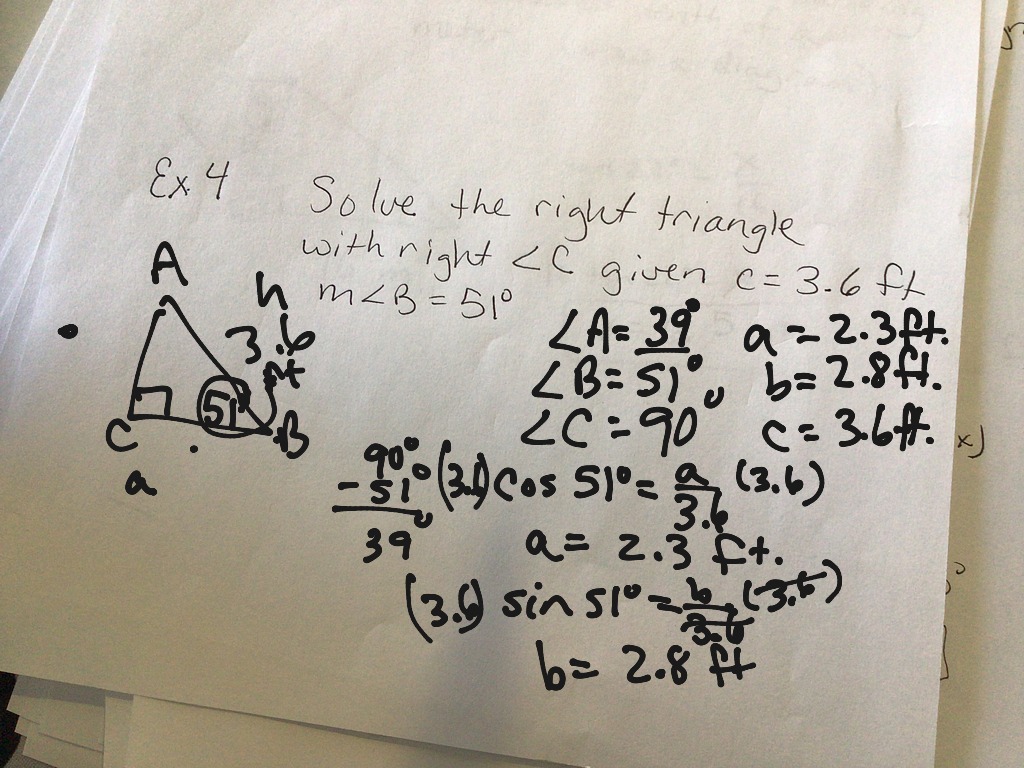 Ex 4
Solve the right triangle
with right ∠C given c = 3.6 ft
m∠B = 51°
A
h
3.6
ft
51°
C
B
a
∠A = 39°
∠B = 51°
∠C = 90°
a = 2.3 ft.
b = 2.8 ft.
c = 3.6 ft.
90°
- 51°
39°
(3.6) cos 51° = a/3.6 (3.6)
a = 2.3 ft.
(3.6) sin 51° = b/3.6 (3.6)
b = 2.8 ft
x)